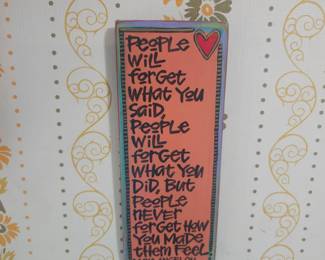 PEOPLE
WILL
FORGET
WHAT YOU
SAID,
PEOPLE
WILL
FORGET
WHAT YOU
DID, BUT
PEOPLE
NEVER
FORGET HOW
YOU MADE
THEM FEEL